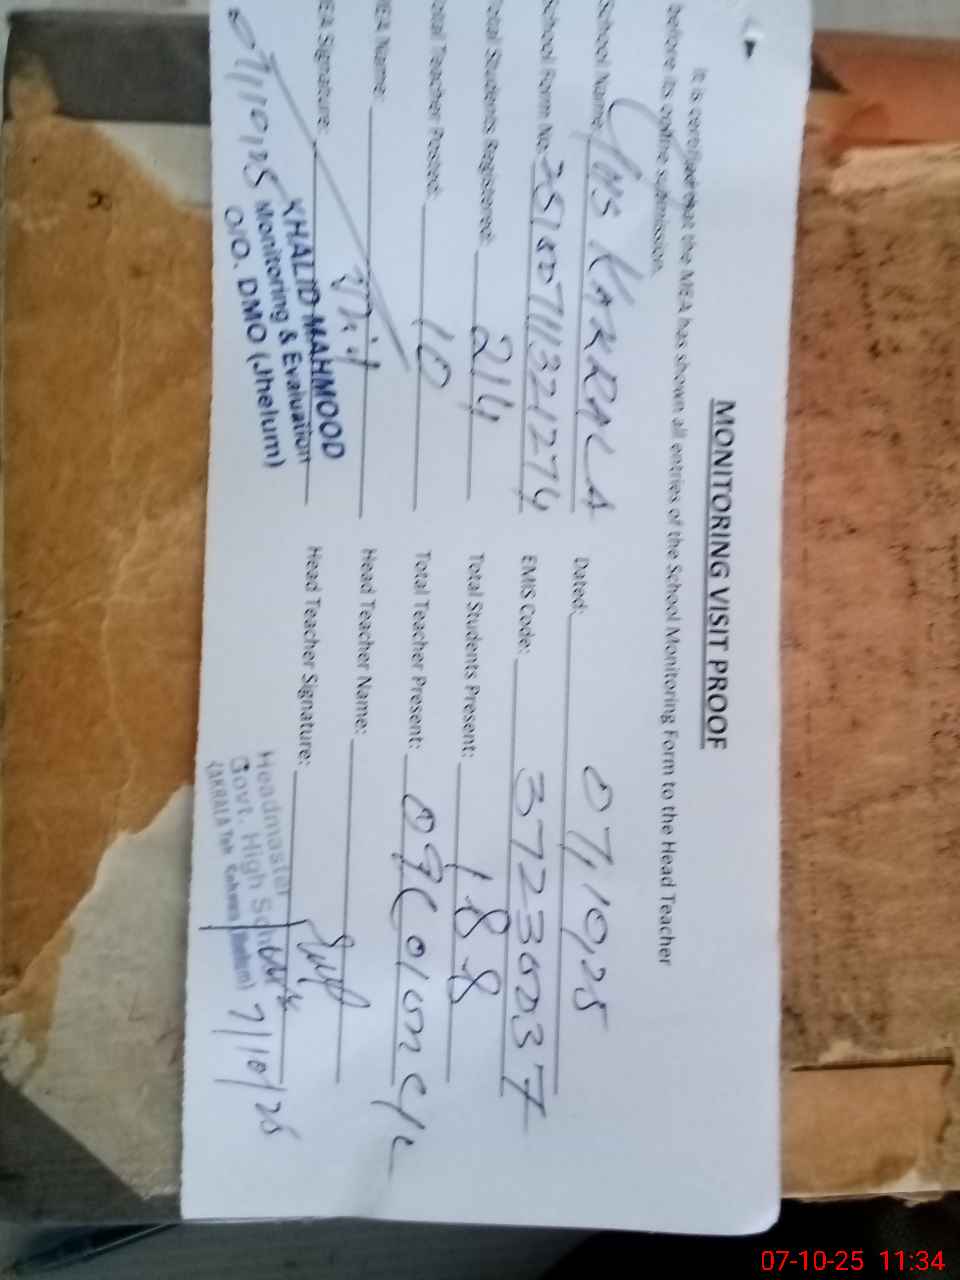 MONITORING VISIT PROOF
It is certified that the MEA has shown all entries of the School Monitoring Form to the Head Teacher
before its online submission.
School Name: GHS KAKRALA Dated: 07,10,25
School Form No: 11321274 EMIS Code: 37230037
Total Students Registered: 214 Total Students Present: 188
Total Teacher Posted: 10 Total Teacher Present: 09(01 on c/l
MEA Name: Head Teacher Name:
MEA Signature: Head Teacher Signature:
07/10/25
KHALID MAHMOOD
Monitoring & Evaluation
O/O. DMO (Jhelum)
Headmaster
Govt. High School
KAKRALA Teh Sohawa (Jhelum)
7/10/25
07-10-25 11:34